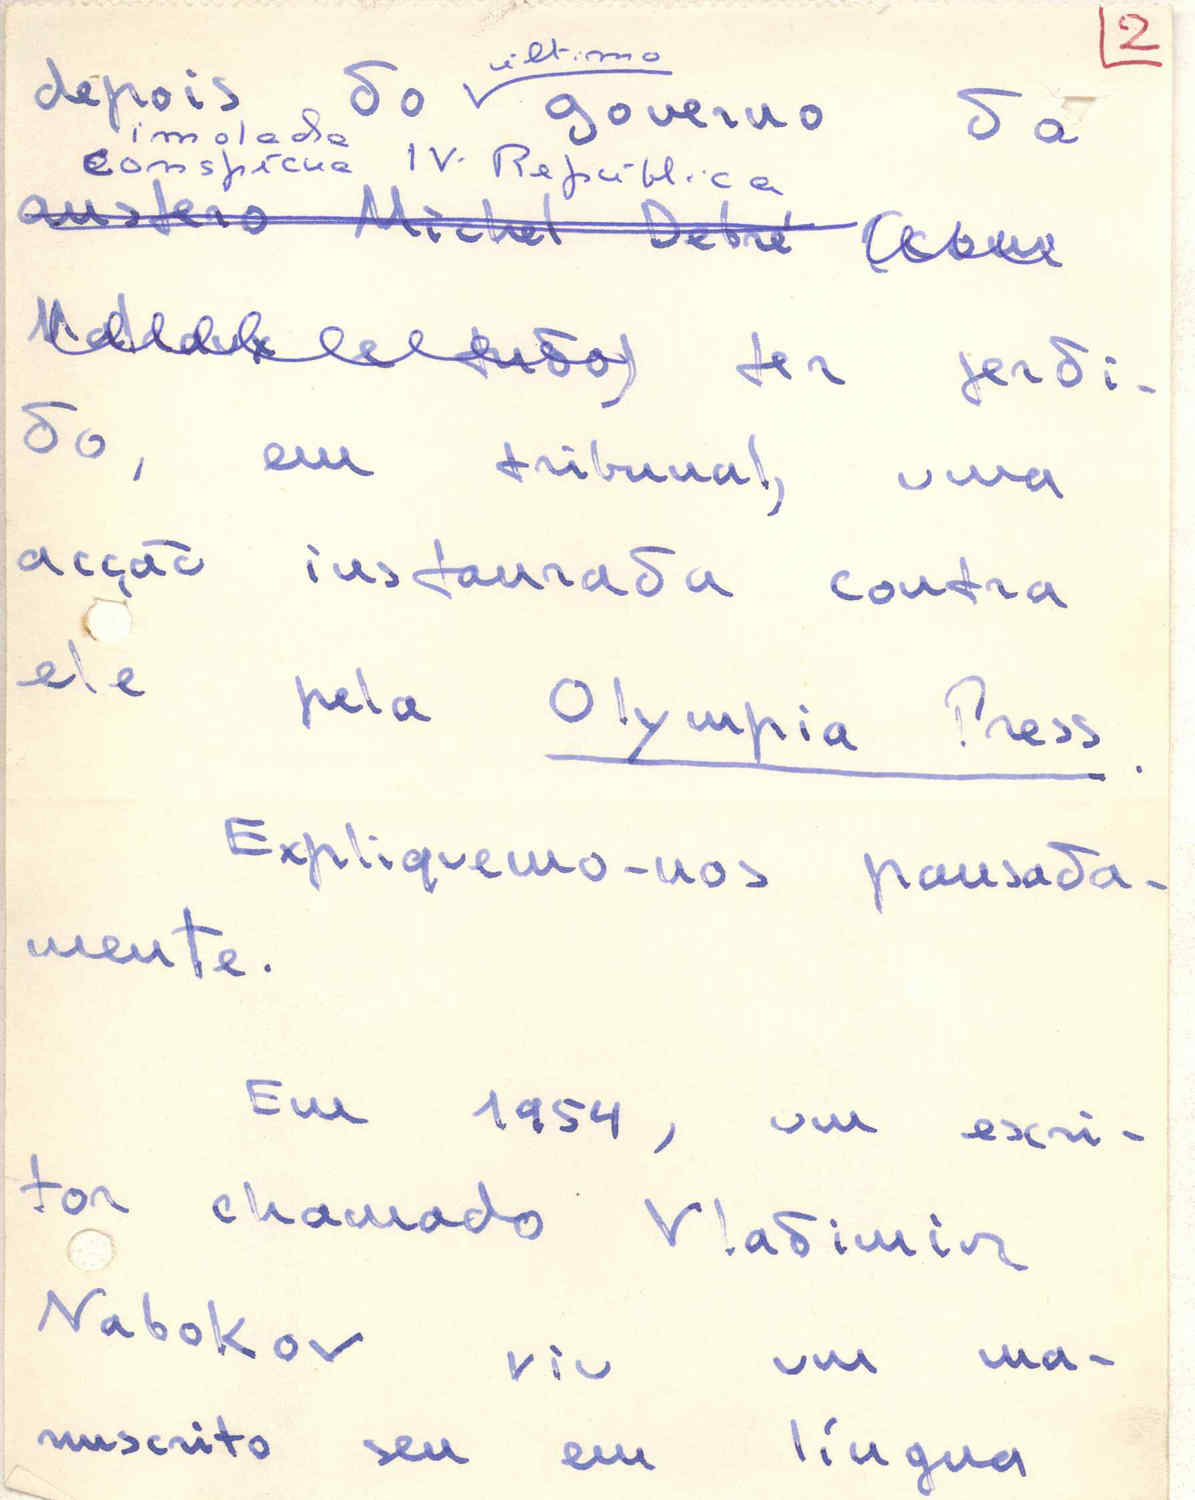 2
último
depois do governo da
imolada
conspícua IV República
austero Michel Debré
tudo) ter perdi-
do, em tribunal, uma
acção instaurada contra
ele pela Olympia Press.
Expliquemo-nos pausada-
mente.
Em 1954, um escri-
tor chamado Vladimir
Nabokov viu um ma-
nuscrito seu em língua